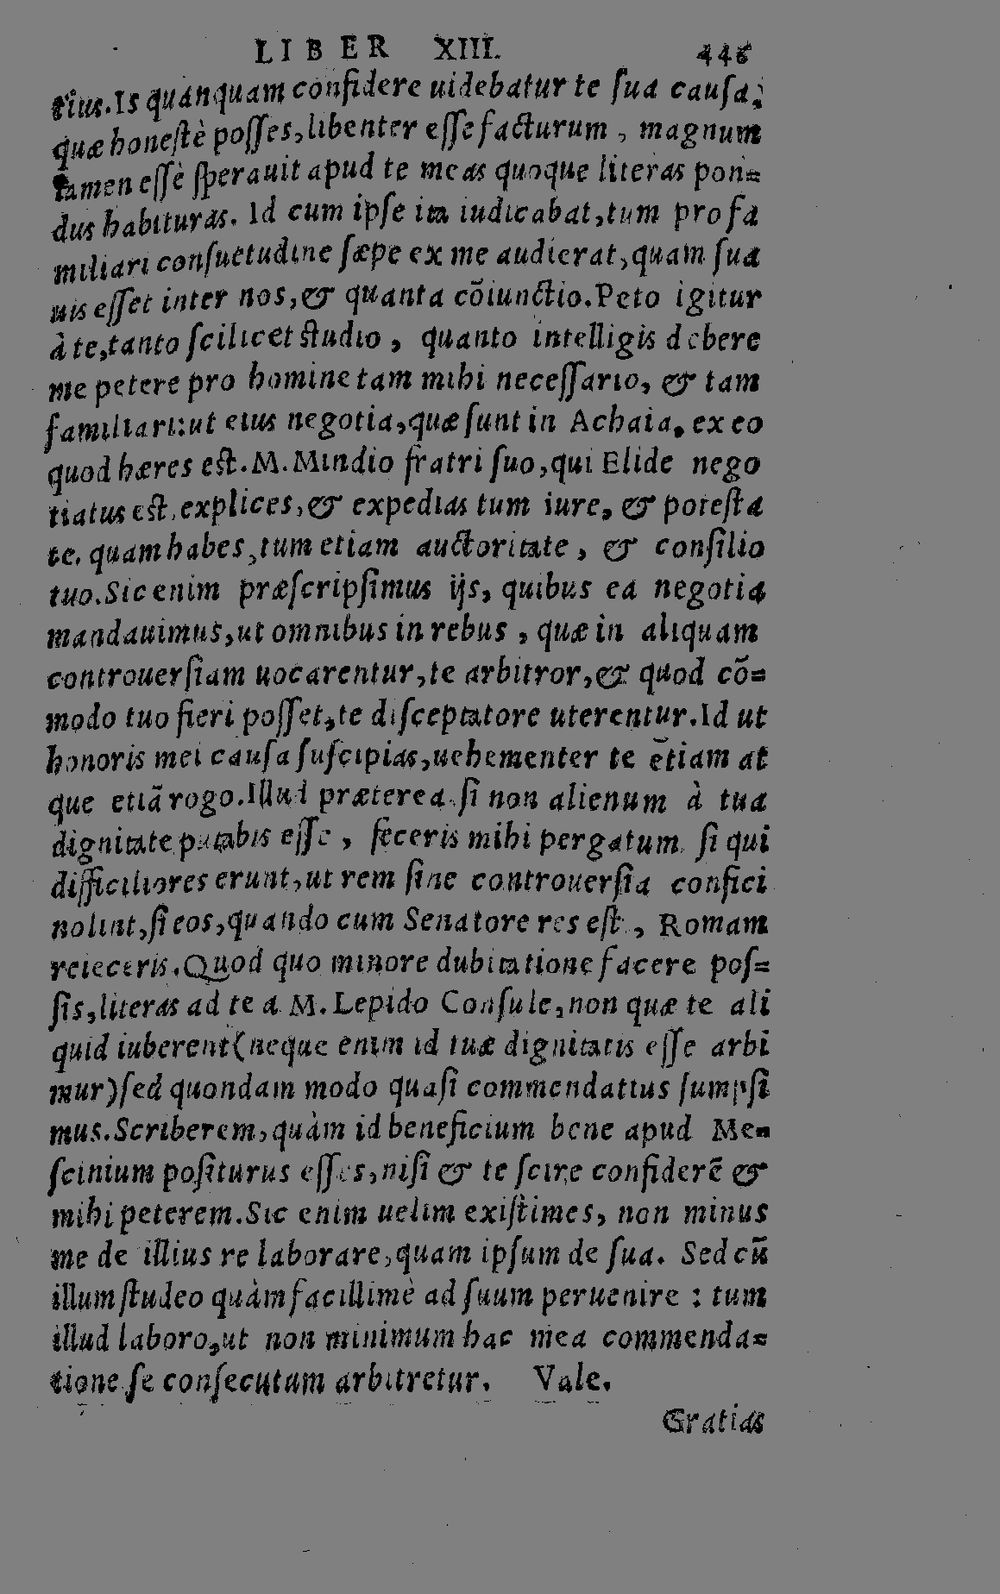 LIBER XIII. 446
tius. Is quanquam confidere uidebatur te sua causa,
quæ honestè posses, libenter esse facturum, magnum
tamen essè sperauit apud te meas quoque literas pon=
dus habituras. Id cum ipse ita iudicabat, tum pro fa
miliari consuetudine sæpe ex me audierat, quam sua
uis esset inter nos, & quanta cōiunctio. Peto igitur
à te, tanto scilicet studio, quanto intelligis debere
me petere pro homine tam mihi necessario, & tam
familiari: ut eius negotia, quæ sunt in Achaia, ex eo
quod hæres est. M. Mindio fratri suo, qui Elide nego
tiatus est, explices, & expedias tum iure, & potesta
te, quam habes, tum etiam auctoritate, & consilio
tuo. Sic enim præscripsimus ijs, quibus ea negotia
mandauimus, ut omnibus in rebus, quæ in aliquam
controuersiam uocarentur, te arbitror, & quod cō=
modo tuo fieri posset, te disceptatore uterentur. Id ut
honoris mei causa suscipias, uehementer te ētiam at
que etiā rogo. Illud præterea si non alienum à tua
dignitate putabis esse, feceris mihi pergatum, si qui
difficiliores erunt, ut rem sine controuersia confici
nolint, si eos, quando cum Senatore res est, Romam
reieceris. Quod quo minore dubitatione facere pos=
sis, literas ad te a M. Lepido Consule, non quæ te ali
quid iuberent (neque enim id tuæ dignitatis esse arbi
mur) sed quondam modo quasi commendatius sumpsi
mus. Scriberem, quàm id beneficium bene apud Me=
scinium positurus esses, nisi & te scire confiderē &
mihi peterem. Sic enim uelim existimes, non minus
me de illius re laborare, quam ipsum de sua. Sed cū
illum studeo quàm facillimè ad suum peruenire : tum
illud laboro, ut non minimum hac mea commenda=
tione se consecutum arbitretur. Vale.
Gratias